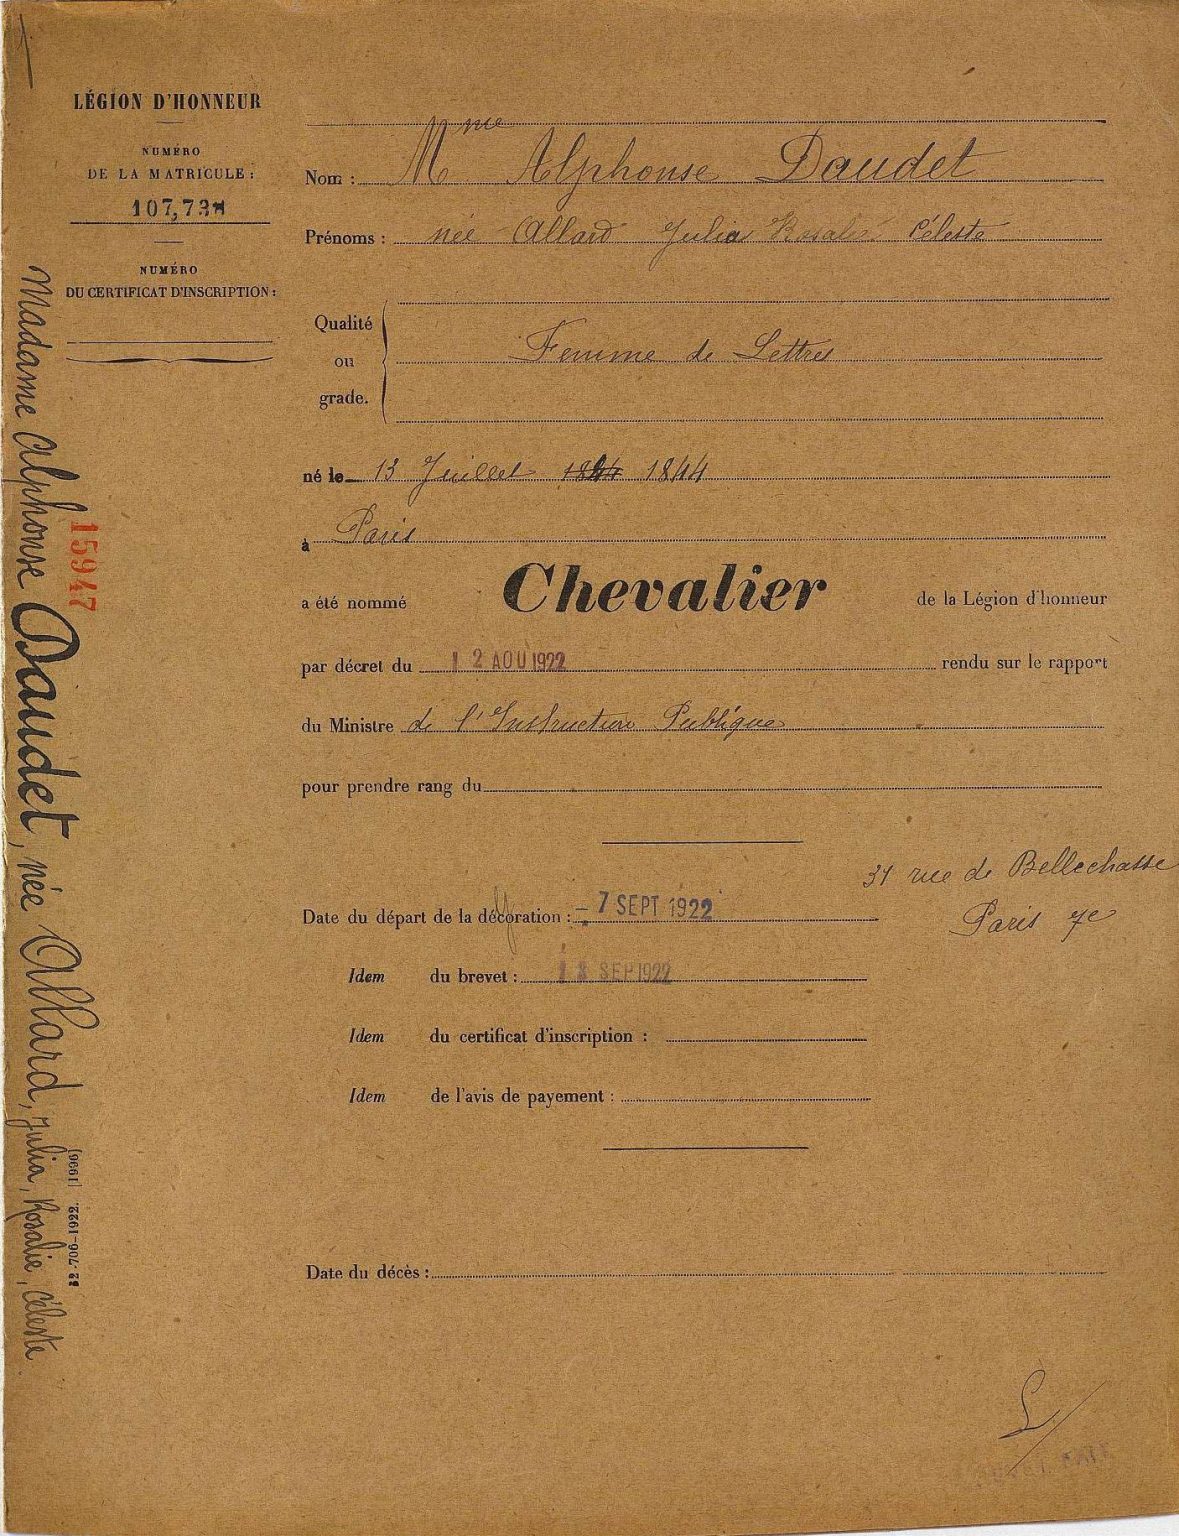 LÉGION D'HONNEUR
NUMÉRO
DE LA MATRICULE :
107,738
NUMÉRO
DU CERTIFICAT D'INSCRIPTION :
Nom : Mme Alphonse Daudet
Prénoms : née Allard Julia Rosalie Céleste
Qualité
ou
grade.
Femme de Lettres
né le 13 Juillet 1844 1844
à Paris
a été nommé Chevalier de la Légion d'honneur
par décret du 12 AOU 1922 rendu sur le rapport
du Ministre de l'Instruction Publique
pour prendre rang du
31 rue de Bellechasse
Paris 7e
Date du départ de la décoration : - 7 SEPT 1922
Idem du brevet : SEP 1922
Idem du certificat d'inscription :
Idem de l'avis de payement :
Date du décès :
Madame Alphonse Daudet, née Allard, Julia, Rosalie, Céleste
15947
32-706-1922. [1996]